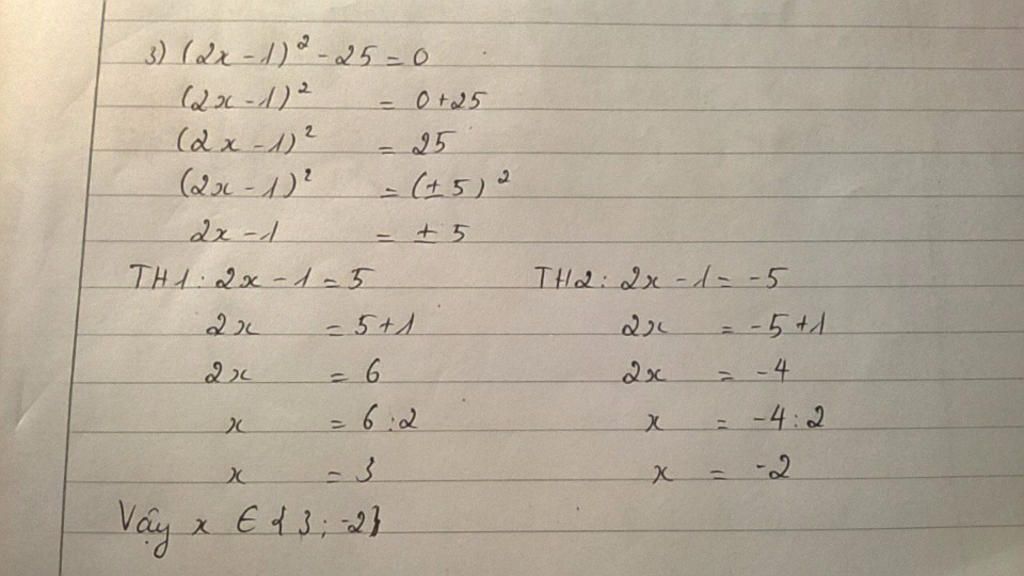 3) (2x-1)² - 25 = 0
(2x-1)² = 0+25
(2x-1)² = 25
(2x-1)² = (±5)²
2x-1 = ±5
TH1: 2x-1 = 5
2x = 5+1
2x = 6
x = 6:2
x = 3
TH2: 2x-1 = -5
2x = -5+1
2x = -4
x = -4:2
x = -2
Vậy x ∈ {3; -2}